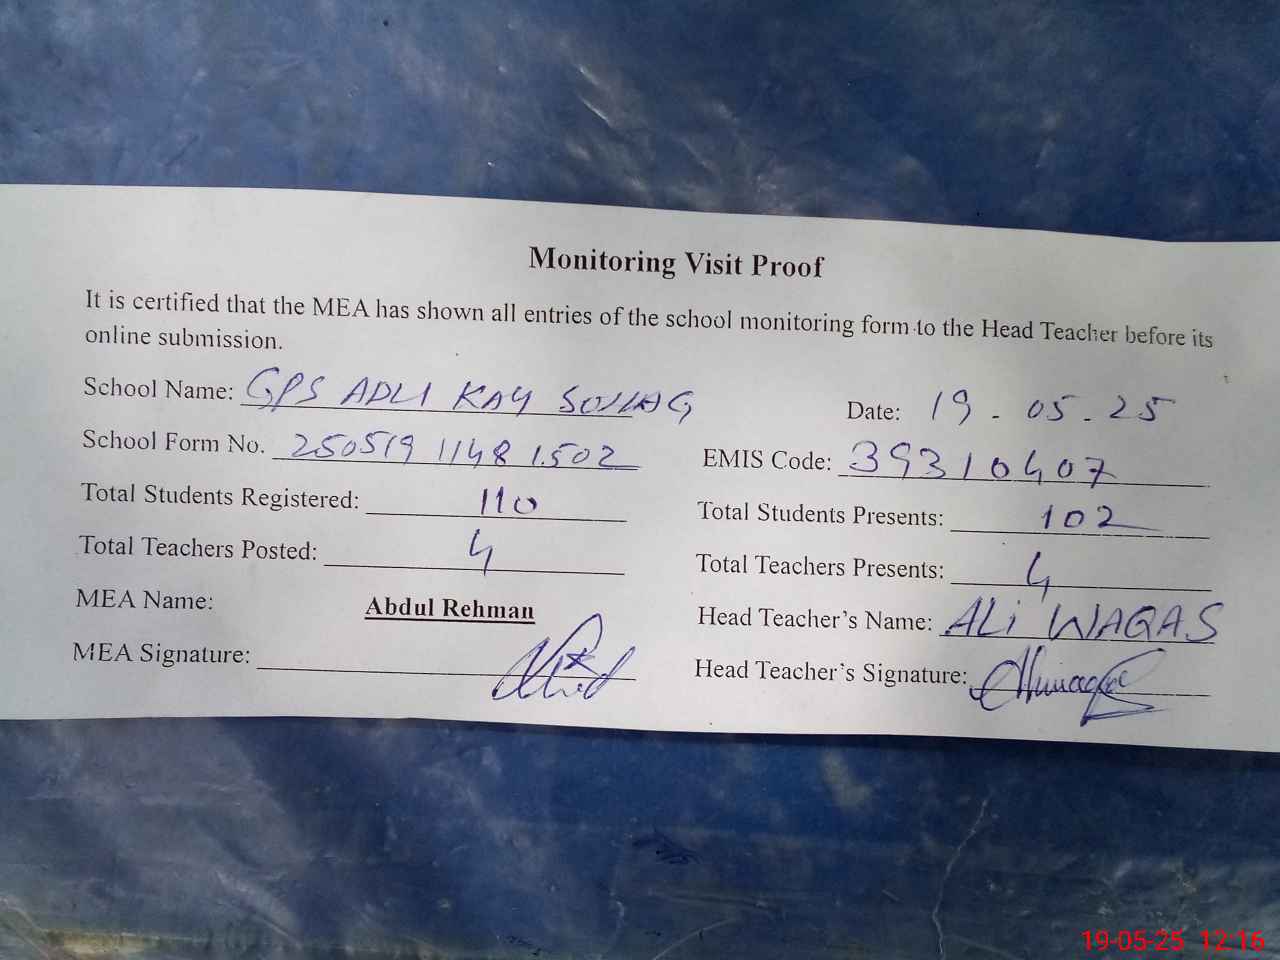 Monitoring Visit Proof
It is certified that the MEA has shown all entries of the school monitoring form to the Head Teacher before its
online submission.
School Name: GPS ADLI KAY SOLLAG Date: 19-05-25
School Form No. 250519 1148 1502 EMIS Code: 39310407
Total Students Registered: 110 Total Students Presents: 102
Total Teachers Posted: 4 Total Teachers Presents: 4
MEA Name: Abdul Rehman Head Teacher's Name: ALi WAQAS
MEA Signature: Head Teacher's Signature:
19-05-25 12:16